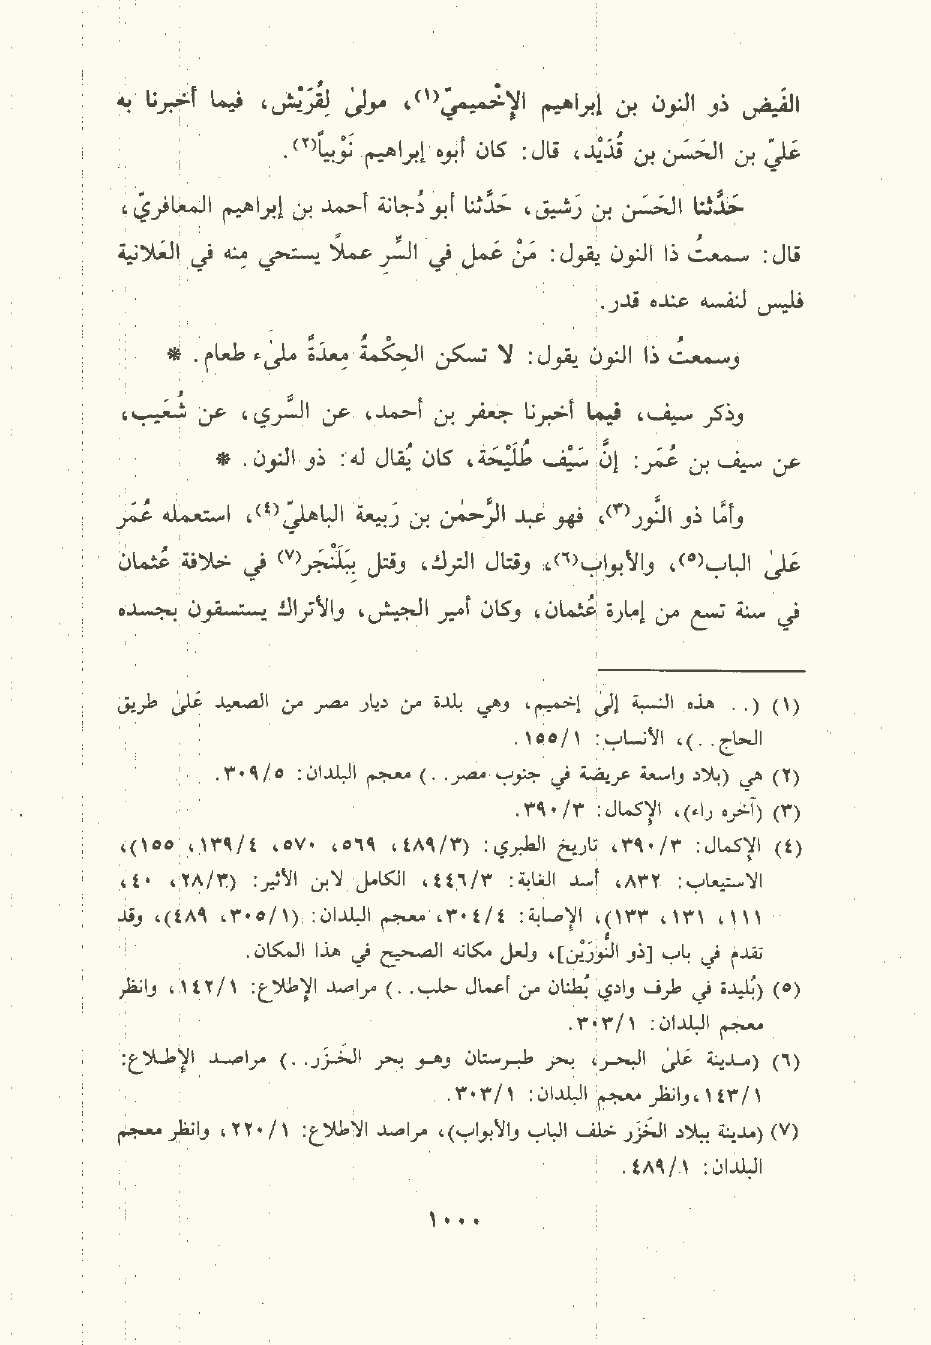 الفَيض ذو النون بن إبراهيم الإِخْميميّ(١)، مولىٰ لِقُرَيْش، فيما أخبرنا به
عَليّ بن الحَسَن بن قُدَيْد، قال: كان أبوه إبراهيم نَوْبياً(٢).
حَدَّثنا الحَسَن بن رَشيق، حَدَّثنا أبو دُجانة أحمد بن إبراهيم المعافريّ،
قال: سمعتُ ذا النون يقول: مَنْ عَمل في السِّر عملاً يستحي مِنه في العَلانية
فليس لنفسه عنده قدر.
وسمعتُ ذا النون يقول: لا تسكن الحِكْمةُ مِعدَةً ملىٰء طعام. *
وذكر سيف، فيما أخبرنا جعفر بن أحمد، عن السَّري، عن شُعَيب،
عن سيف بن عُمَر: إنَّ سَيْف طُلَيْحَة، كان يُقال له: ذو النون. *
وأمَّا ذو النَّور(٣)، فهو عبد الرَّحمٰن بن رَبيعة الباهليّ(٤)، استعمله عُمَر
عَلىٰ الباب(٥)، والأبواب(٦)، وقتال الترك، وقتل بِبَلَنْجَر(٧) في خلافة عُثمان
في سنة تسع من إمارة عُثمان، وكان أمير الجيش، والأتراك يستسقون بجسده
(١) (.. هذه النسبة إلىٰ إخميم، وهي بلدة من ديار مصر من الصعيد عَلىٰ طريق
الحاج..)، الأنساب: ١/١٥٥.
(٢) هي (بلاد واسعة عريضة في جنوب مصر..) معجم البلدان: ٥/٣٠٩.
(٣) (آخره راء)، الإِكمال: ٣/٣٩٠.
(٤) الإِكمال: ٣/٣٩٠، تاريخ الطبري: (٣/٤٨٩، ٥٦٩، ٥٧٠، ٤/١٣٩، ١٥٥)،
الاستيعاب: ٨٣٢، أسد الغابة: ٣/٤٤٦، الكامل لابن الأثير: (٣/٢٨، ٤٠،
١١١، ١٣١، ١٣٣)، الإِصابة: ٤/٣٠٤، معجم البلدان: (١/٣٠٥، ٤٨٩)، وقد
تقدم في باب [ذو النُّورَيْن]، ولعل مكانه الصحيح في هذا المكان.
(٥) (بُليدة في طرف وادي بُطنان من أعمال حلب..) مراصد الإِطلاع: ١/١٤٢، وانظر
معجم البلدان: ١/٣٠٣.
(٦) (مدينة عَلىٰ البحر، بحر طبرستان وهو بحر الخَزر..) مراصد الإِطلاع:
١/١٤٣،وانظر معجم البلدان: ١/٣٠٣.
(٧) (مدينة ببلاد الخَزَر خلف الباب والأبواب)، مراصد الاطلاع: ١/٢٢٠، وانظر معجم
البلدان: ١/٤٨٩.
١٠٠٠